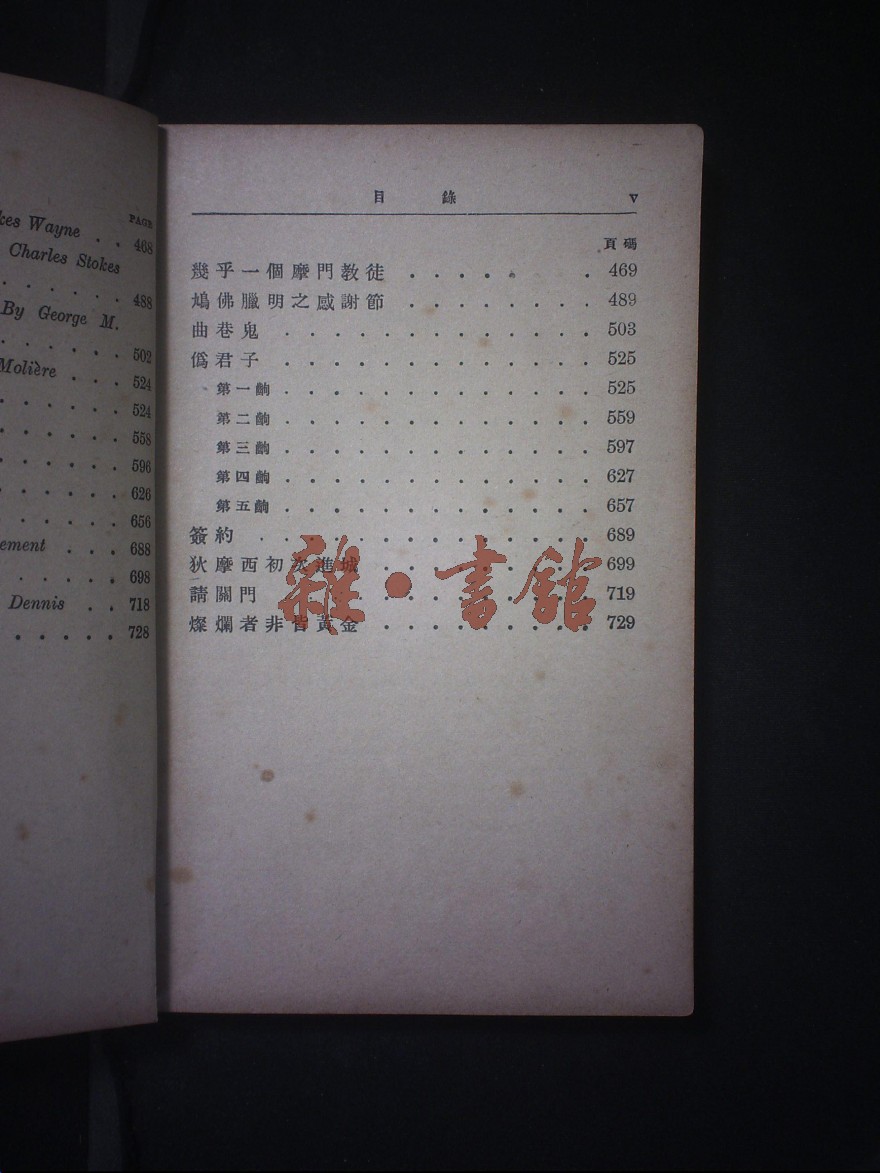 PAGE
kes Wayne . . 468
Charles Stokes
. . . . . . 488
By George M.
. . . . . . 502
Molière . . . 524
. . . . . . 524
. . . . . . 558
. . . . . . 596
. . . . . . 626
. . . . . . 656
ement . . . 688
. . . . . 698
Dennis . . 718
. . . . . 728
目 錄 v
頁碼
幾乎一個摩門教徒 . . . . . . . . 469
鴆佛臘明之感謝節 . . . . . . . . 489
曲巷鬼 . . . . . . . . . . . . . 503
僞君子 . . . . . . . . . . . . . 525
第一齣 . . . . . . . . . . . . . 525
第二齣 . . . . . . . . . . . . . 559
第三齣 . . . . . . . . . . . . . 597
第四齣 . . . . . . . . . . . . . 627
第五齣 . . . . . . . . . . . . . 657
簽約 . . . . . . . . . . . . . . 689
狄摩西初次進城 . . . . . . . . . 699
請關門 . . . . . . . . . . . . 719
燦爛者非皆黃金 . . . . . . . . . 729
雜·書館